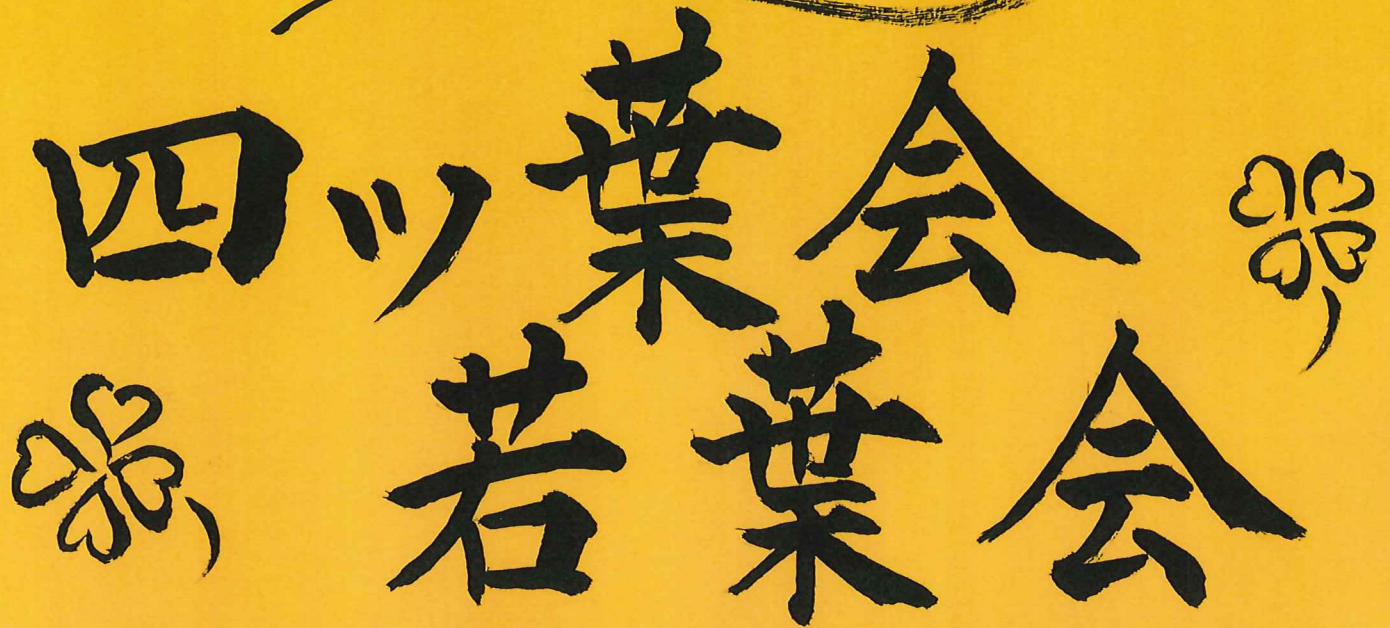 四ッ葉会
若葉会